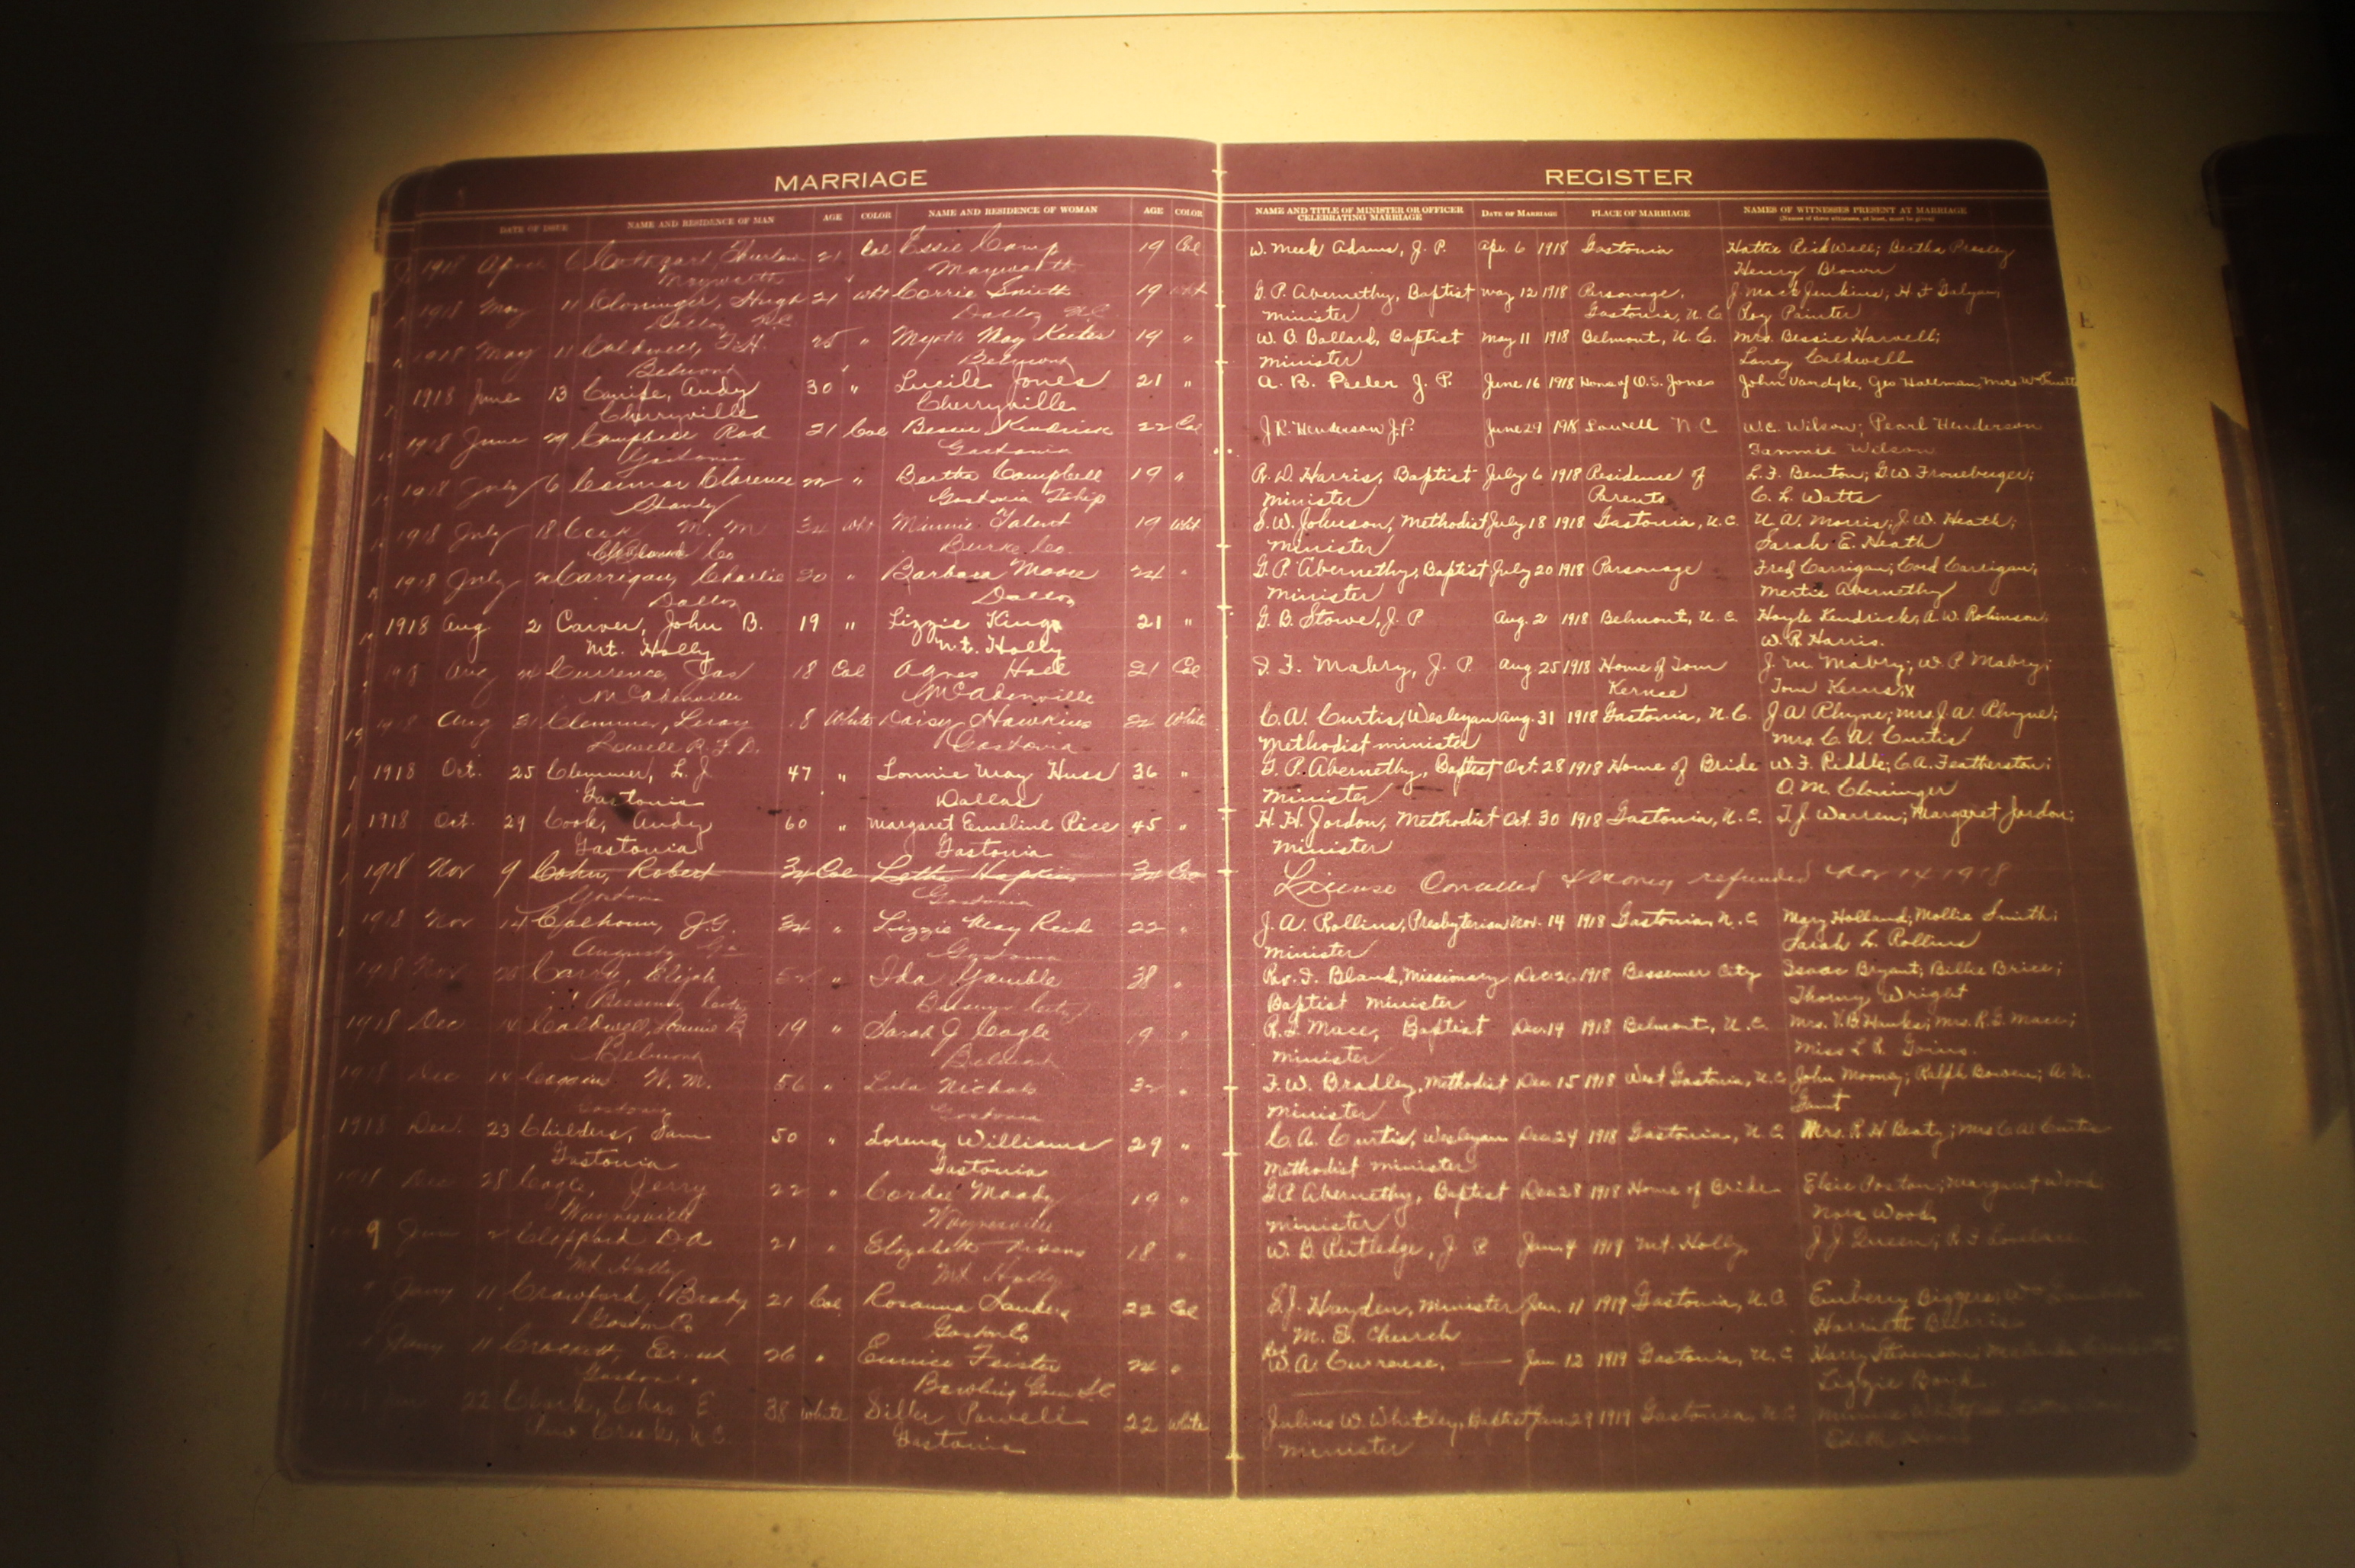 MARRIAGE
DATE OF ISSUE NAME AND RESIDENCE OF MAN AGE COLOR NAME AND RESIDENCE OF WOMAN AGE COLOR
1918 April 6 21 Col Essie Camp 19 Col
Mayworth Mayworth
1918 May 11 Cloninger, Hugh 21 Wht Corrie Smith 19
Dallas NC Dallas N.C.
1918 May 11 Caldwell, 25 " May 19 "
Belmont Belmont
1918 June 13 Andy 30 " Lucile Jones 21 "
Cherryville Cherryville
1918 June 29 Campbell Rob 21 Col Bessie Kendrick 22 Col
Gastonia Gastonia
1918 July 6 Clarence 22 " Bertha Campbell 19 "
Gastonia Tship
1918 July 18 Cook M. M 34 Wht Minnie Talent 19 Wht
Cleveland Co Burke Co.
1918 July Carrigan, Charlie 20 " Barbara Moore 24 "
Dallas Dallas
1918 Aug 2 Carver, John B. 19 " Lizzie King 21 "
Mt. Holly Mt. Holly
1918 Aug 24 Currence, Jas 18 Col Agnes Hall 21 Col
McAdenville McAdenville
1918 Aug 31 Clemmer, Leroy 18 White Daisy Hawkins 22 White
Lowell R.F.D. Gastonia
1918 Oct. 25 Clemmer, L. J. 47 " Lonnie May Huss 36 "
Gastonia Dallas
1918 Oct. 29 Cook, Andy 60 " Margaret Emeline Rice 45 "
Gastonia Gastonia
1918 Nov 9 Cohn, Robert 34 Col Letha Hopkins 34 Col
Gastonia Gastonia
1918 Nov 14 Calhoun, J.G. 34 " Lizzie May Reid 22 "
Augusta Ga Gastonia
1918 Nov 25 Elijah " Ida Gamble 38 "
Bessemer City Bessemer City
1918 Dec 14 Caldwell, 19 " Sarah J Cagle 19 "
Belmont Belmont
1918 Dec 14 W. M. 56 " Lula Nichols 32 "
Gastonia Gastonia
1918 Dec. 23 Childers, Sam 50 " Williams 29 "
Gastonia Gastonia
1918 Dec 28 Cagle, Jerry 22 " Cordie Moody 19 "
Waynesville Waynesville
9 Jan 2 D.A 21 " Elizabeth 18 "
Mt Holly Mt Holly
9 Jany 11 Crawford, Brady 21 Col Rosanna 22 Col
Gaston Co Gaston Co
Jany 11 Crockett, 26 " Eunice Feister 24 "
Gastonia Bowling Green S.C.
22 Clark, Chas E 38 White Powell 22 White
N.C. Gastonia
REGISTER
NAME AND TITLE OF MINISTER OR OFFICER CELEBRATING MARRIAGE DATE OF MARRIAGE PLACE OF MARRIAGE NAMES OF WITNESSES PRESENT AT MARRIAGE
(Names of three witnesses, at least, must be given)
W. Meek Adams, J. P. Apr. 6 1918 Gastonia Hattie Bertha Presley
Henry Brown
G. P. Abernethy, Baptist May 12 1918 Parsonage, J Mack Jenkins, H. F.
Minister Gastonia, N. C Roy Painter
W. B. Ballard, Baptist May 11 1918 Belmont, N. C. Mrs. Bessie Harvell;
Minister Laney Caldwell
A. B. Peeler J. P. June 16 1918 Home of O.S. Jones John Vandyke, Geo Hallman, Mrs.
J.R. Henderson J.P. June 29 1918 Lowell N C W.C. Wilson; Pearl Henderson
Fannie Wilson
R. D. Harris, Baptist July 6 1918 Residence of L. F. Benton; G.W. Froneberger;
Minister Parents C. L. Watts
S. W. Johnson, Methodist July 18 1918 Gastonia, N.C. N. A. Morris; J. W. Heath;
Minister Sarah E. Heath
G. P. Abernethy, Baptist July 20 1918 Parsonage Fred Carrigan; Cord Carrigan;
Minister Mertie Abernethy
G. B. Stowe, J. P Aug. 2 1918 Belmont, N. C. Hoyle Kendrick; A. W. Robinson;
W. R. Harris.
I. F. Mabry, J. P. Aug 25 1918 Home of Tom J. M. Mabry; W. P. Mabry;
Tom Kerns, x
C. A. Curtis, Wesleyan Aug. 31 1918 Gastonia, N. C. J. A. Rhyne; Mrs. J. A. Rhyne;
Methodist minister Mrs. C. A. Curtis
G. P. Abernethy, Baptist Oct. 28 1918 Home of Bride W. F. Riddle; C.A. Featherston;
Minister O. M. Cloninger
H. H. Jordon, Methodist Oct. 30 1918 Gastonia, N. C. T.J. Warren; Margaret Jordon;
Minister
License Cancelled & Money refunded Nov 14 1918
J. A. Rollins, Presbyterian Nov. 14 1918 Gastonia, N. C Mary Holland; Mollie Smith;
Minister Sarah L. Rollins
Bland, Missionary Dec. 26 1918 Bessemer City Isaac Bryant; Billie Brice;
Baptist Minister Wright
R. E. Mace, Baptist Dec. 14 1918 Belmont, N. C. Mrs. V.B. Hawks; Mrs. R. E. Mace;
Minister Miss L. R. Goins.
F. W. Bradley, Methodist Dec. 15 1918 West Gastonia, N.C. John Mooney; Ralph Bowen; A. N.
Minister Gant
C. A. Curtis, Wesleyan Dec 24 1918 Gastonia, N. C. Mrs. R. H Beaty; Mrs C A Curtis
Methodist minister
G.P. Abernethy, Baptist Dec 28 1918 Home of Bride Elsie Poston; Margaret Wood
Minister Nora Wood
W. B. Rutledge, J. P. Jan. 4 1919 Mt. Holly J J Queen;
E.J. Hayden, Minister Jan. 11 1919 Gastonia, N. C. Biggers;
M. E. Church Harriett
Rev W. A. Currence, Jan 12 1919 Gastonia, N. C Harry Stevenson;
Lizzie
Julius W. Whitley, Baptist Jan 29 1919 Gastonia, N.C. Minnie
Minister Edith
E